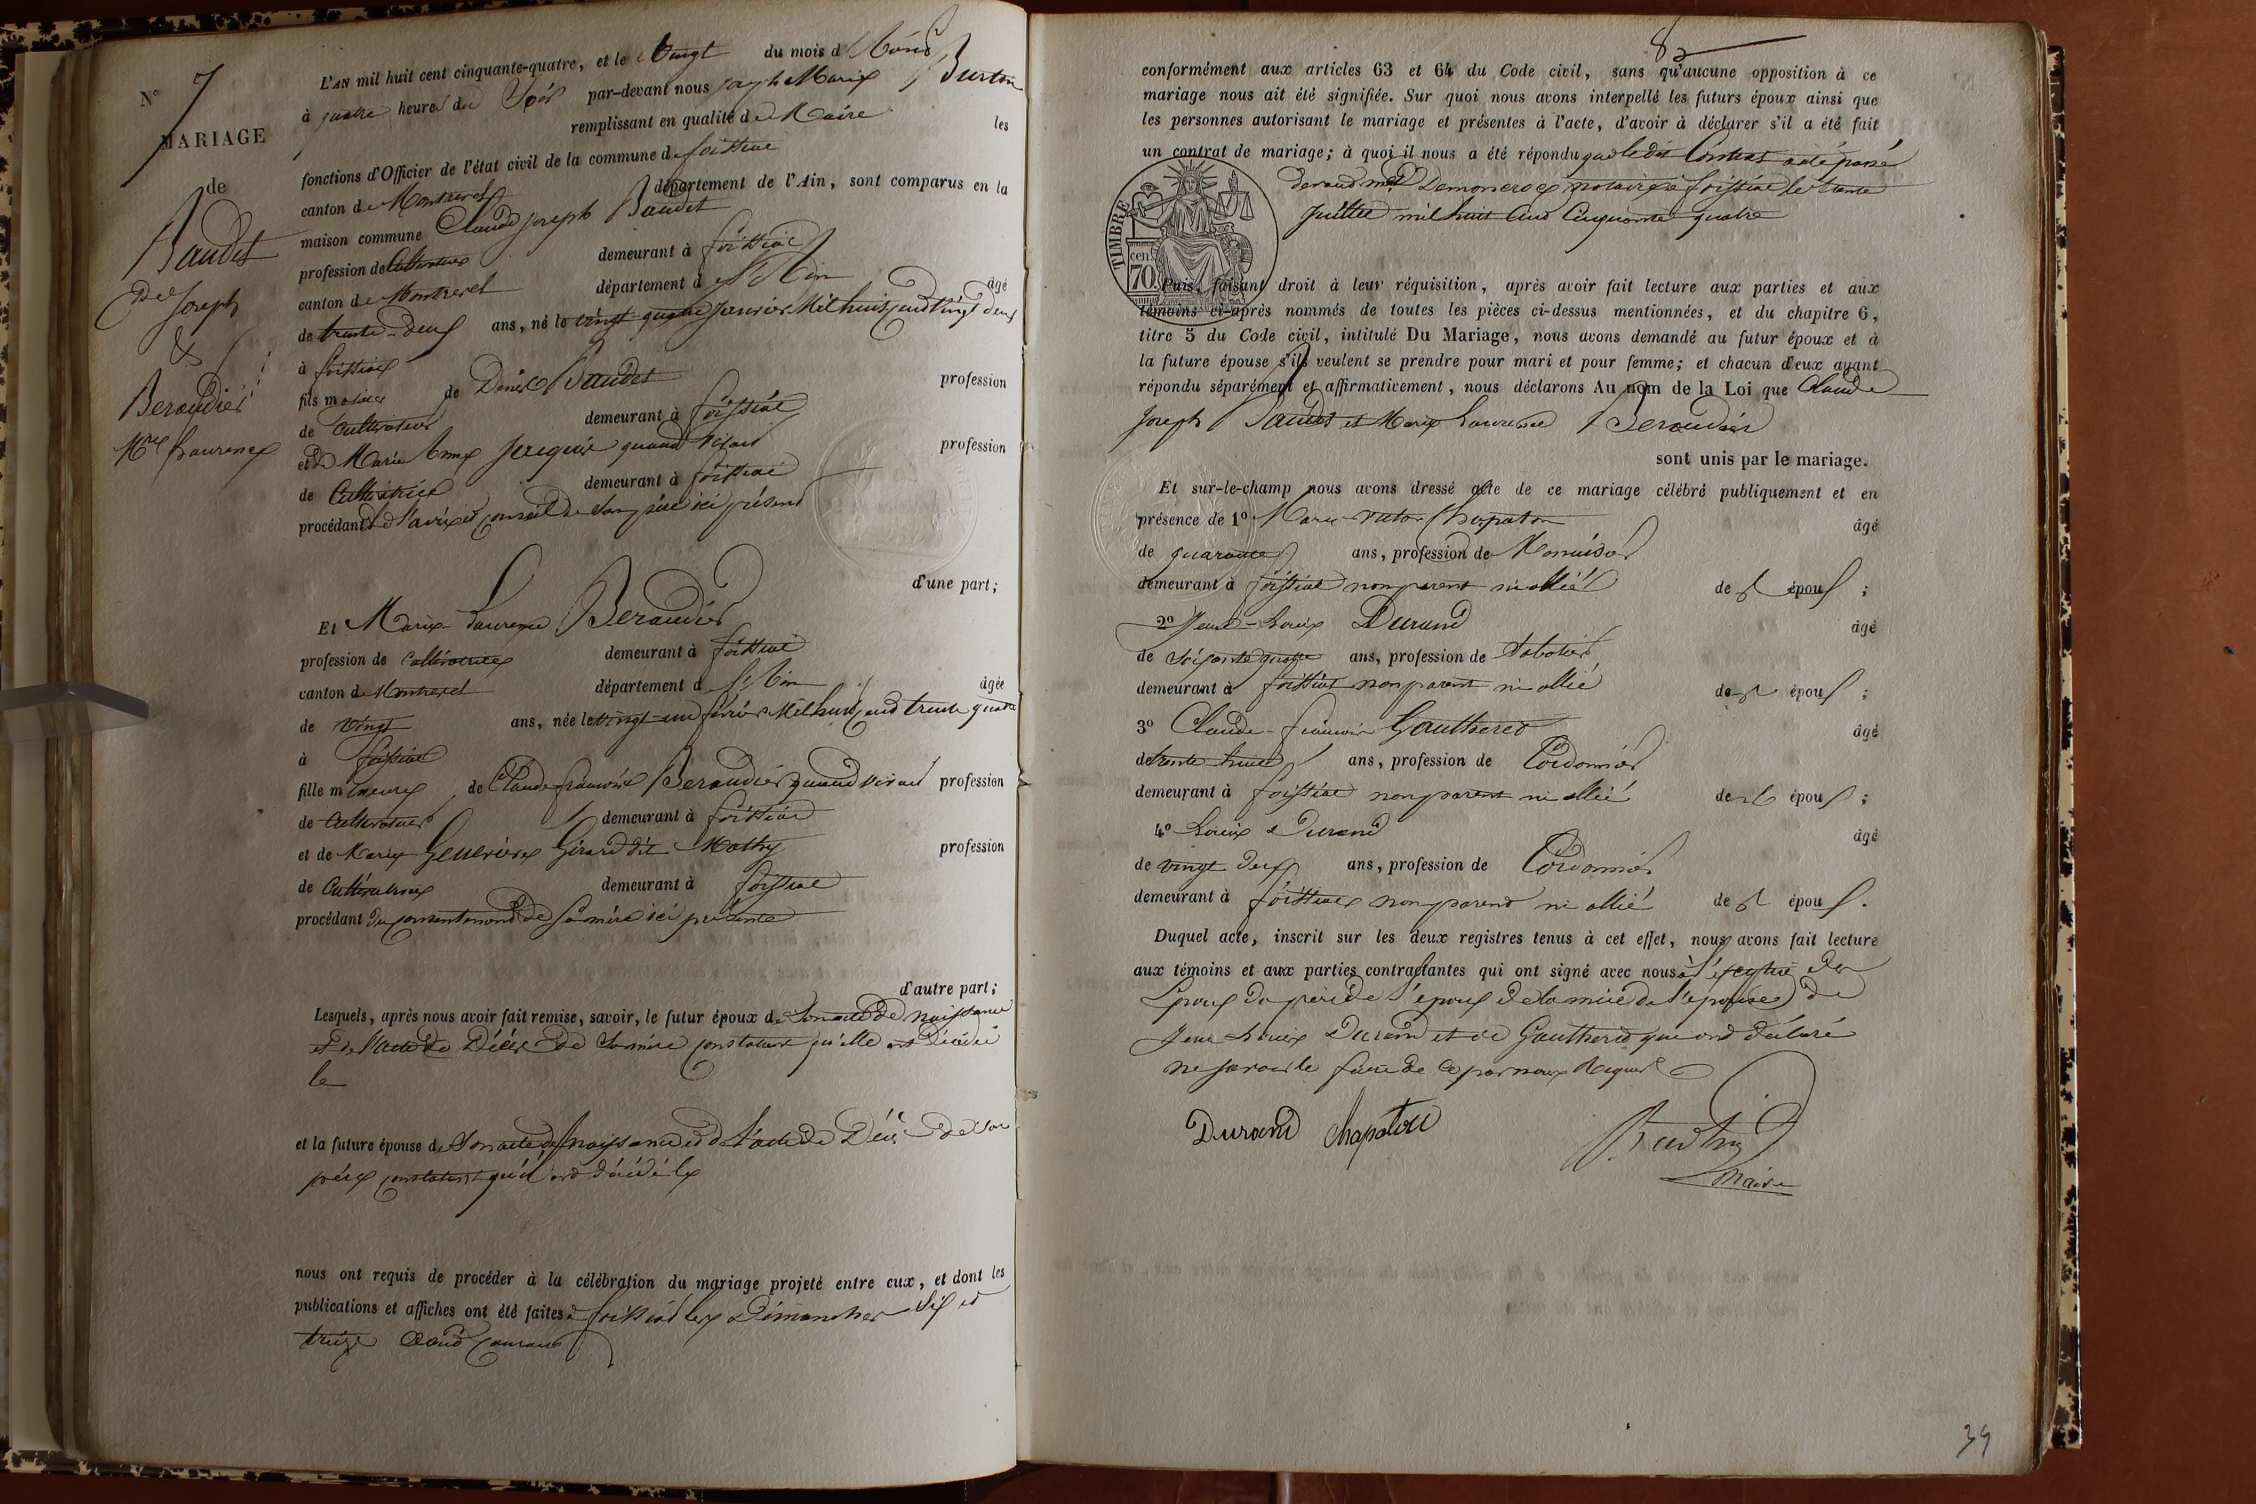 N° 7
MARIAGE
de
Baudet
Cde Joseph
&
Beraudier
Mie Laurence
L'AN mil huit cent cinquante-quatre, et le Vingt du mois d'Aoûst
à quatre heures du Soir par-devant nous Joseph Marie Burtin
remplissant en qualité de Maire les
fonctions d'Officier de l'état civil de la commune de foissiat
canton de Montrevel département de l'Ain, sont comparus en la
maison commune Claude Joseph Baudet
profession de Cultivateur demeurant à foissiat
canton de Montrevel département de l'Ain âgé
de trente-deux ans, né le vingt quatre Janvier Mil huit Cend Vingt deux
à foissiat
fils majeur de Denis Baudet profession
de Cultivateur demeurant à foissiat
et de Marie Anne quand vivait profession
de Cultivatrice demeurant à foissiat
procédant de l'avis et conseil de Son père ici présent
d'une part;
Et Marie Laurence Beraudier
profession de Cultivatrice demeurant à foissiat
canton de Montrevel département de l'Ain âgée
de vingt ans, née le vingt un février Mil huit Cend trente quatre
à foissiat
fille mineure de Claude françois Beraudier quand vivait profession
de Cultivateur demeurant à foissiat
et de Marie Genevieve Girard dit Mathy profession
de Cultivatrice demeurant à foissiat
procédant du consentement de Sa mère ici présente
d'autre part;
Lesquels, après nous avoir fait remise, savoir, le futur époux de Son acte de naissance
et de l'acte de Décès de Sa mère constatant qu'elle est Décédée
le
et la future épouse de Son acte de naissance et de l'acte de Décès de Son
père constatant qu'il est décédé le
nous ont requis de procéder à la célébration du mariage projeté entre eux, et dont les
publications et affiches ont été faites à foissiat les Dimanches Six et
treize Aoûst Courant
82
conformément aux articles 63 et 64 du Code civil, sans qu'aucune opposition à ce
mariage nous ait été signifiée. Sur quoi nous avons interpellé les futurs époux ainsi que
les personnes autorisant le mariage et présentes à l'acte, d'avoir à déclarer s'il a été fait
un contrat de mariage; à quoi il nous a été répondu que ledit Contrat a été passé
devand notaire à foissiat le trente
Juillet mil huit Cend Cinquante quatre
TIMBRE
cen.
70.
Puis, faisant droit à leur réquisition, après avoir fait lecture aux parties et aux
témoins ci-après nommés de toutes les pièces ci-dessus mentionnées, et du chapitre 6,
titre 5 du Code civil, intitulé Du Mariage, nous avons demandé au futur époux et à
la future épouse s'ils veulent se prendre pour mari et pour femme; et chacun d'eux ayant
répondu séparément et affirmativement, nous déclarons Au nom de la Loi que Claude
Joseph Baudet et Marie Laurence Beraudier
sont unis par le mariage.
Et sur-le-champ nous avons dressé acte de ce mariage célébré publiquement et en
présence de 1° Marie Victor Chapaton âgé
de quarante ans, profession de Menuisier
demeurant à foissiat non parent ni allié des époux;
2° Jean-Louis Durand âgé
de Soixante quatre ans, profession de Sabotier
demeurant à foissiat non parent ni allié des époux;
3° Claude-françois Gautheret âgé
de trente huit ans, profession de Cordonnier
demeurant à foissiat non parent ni allié des époux;
4° Louis Durand âgé
de vingt deux ans, profession de Cordonnier
demeurant à foissiat non parent ni allié des époux.
Duquel acte, inscrit sur les deux registres tenus à cet effet, nous avons fait lecture
aux témoins et aux parties contractantes qui ont signé avec nous à l'exception des
époux du père de l'époux de la mère de l'épouse de
Jean Louis Durand et de Gautheret qui ont déclaré
ne savoir le faire de ce par nous Requis
Durand Chapaton Burtin
Maire
39